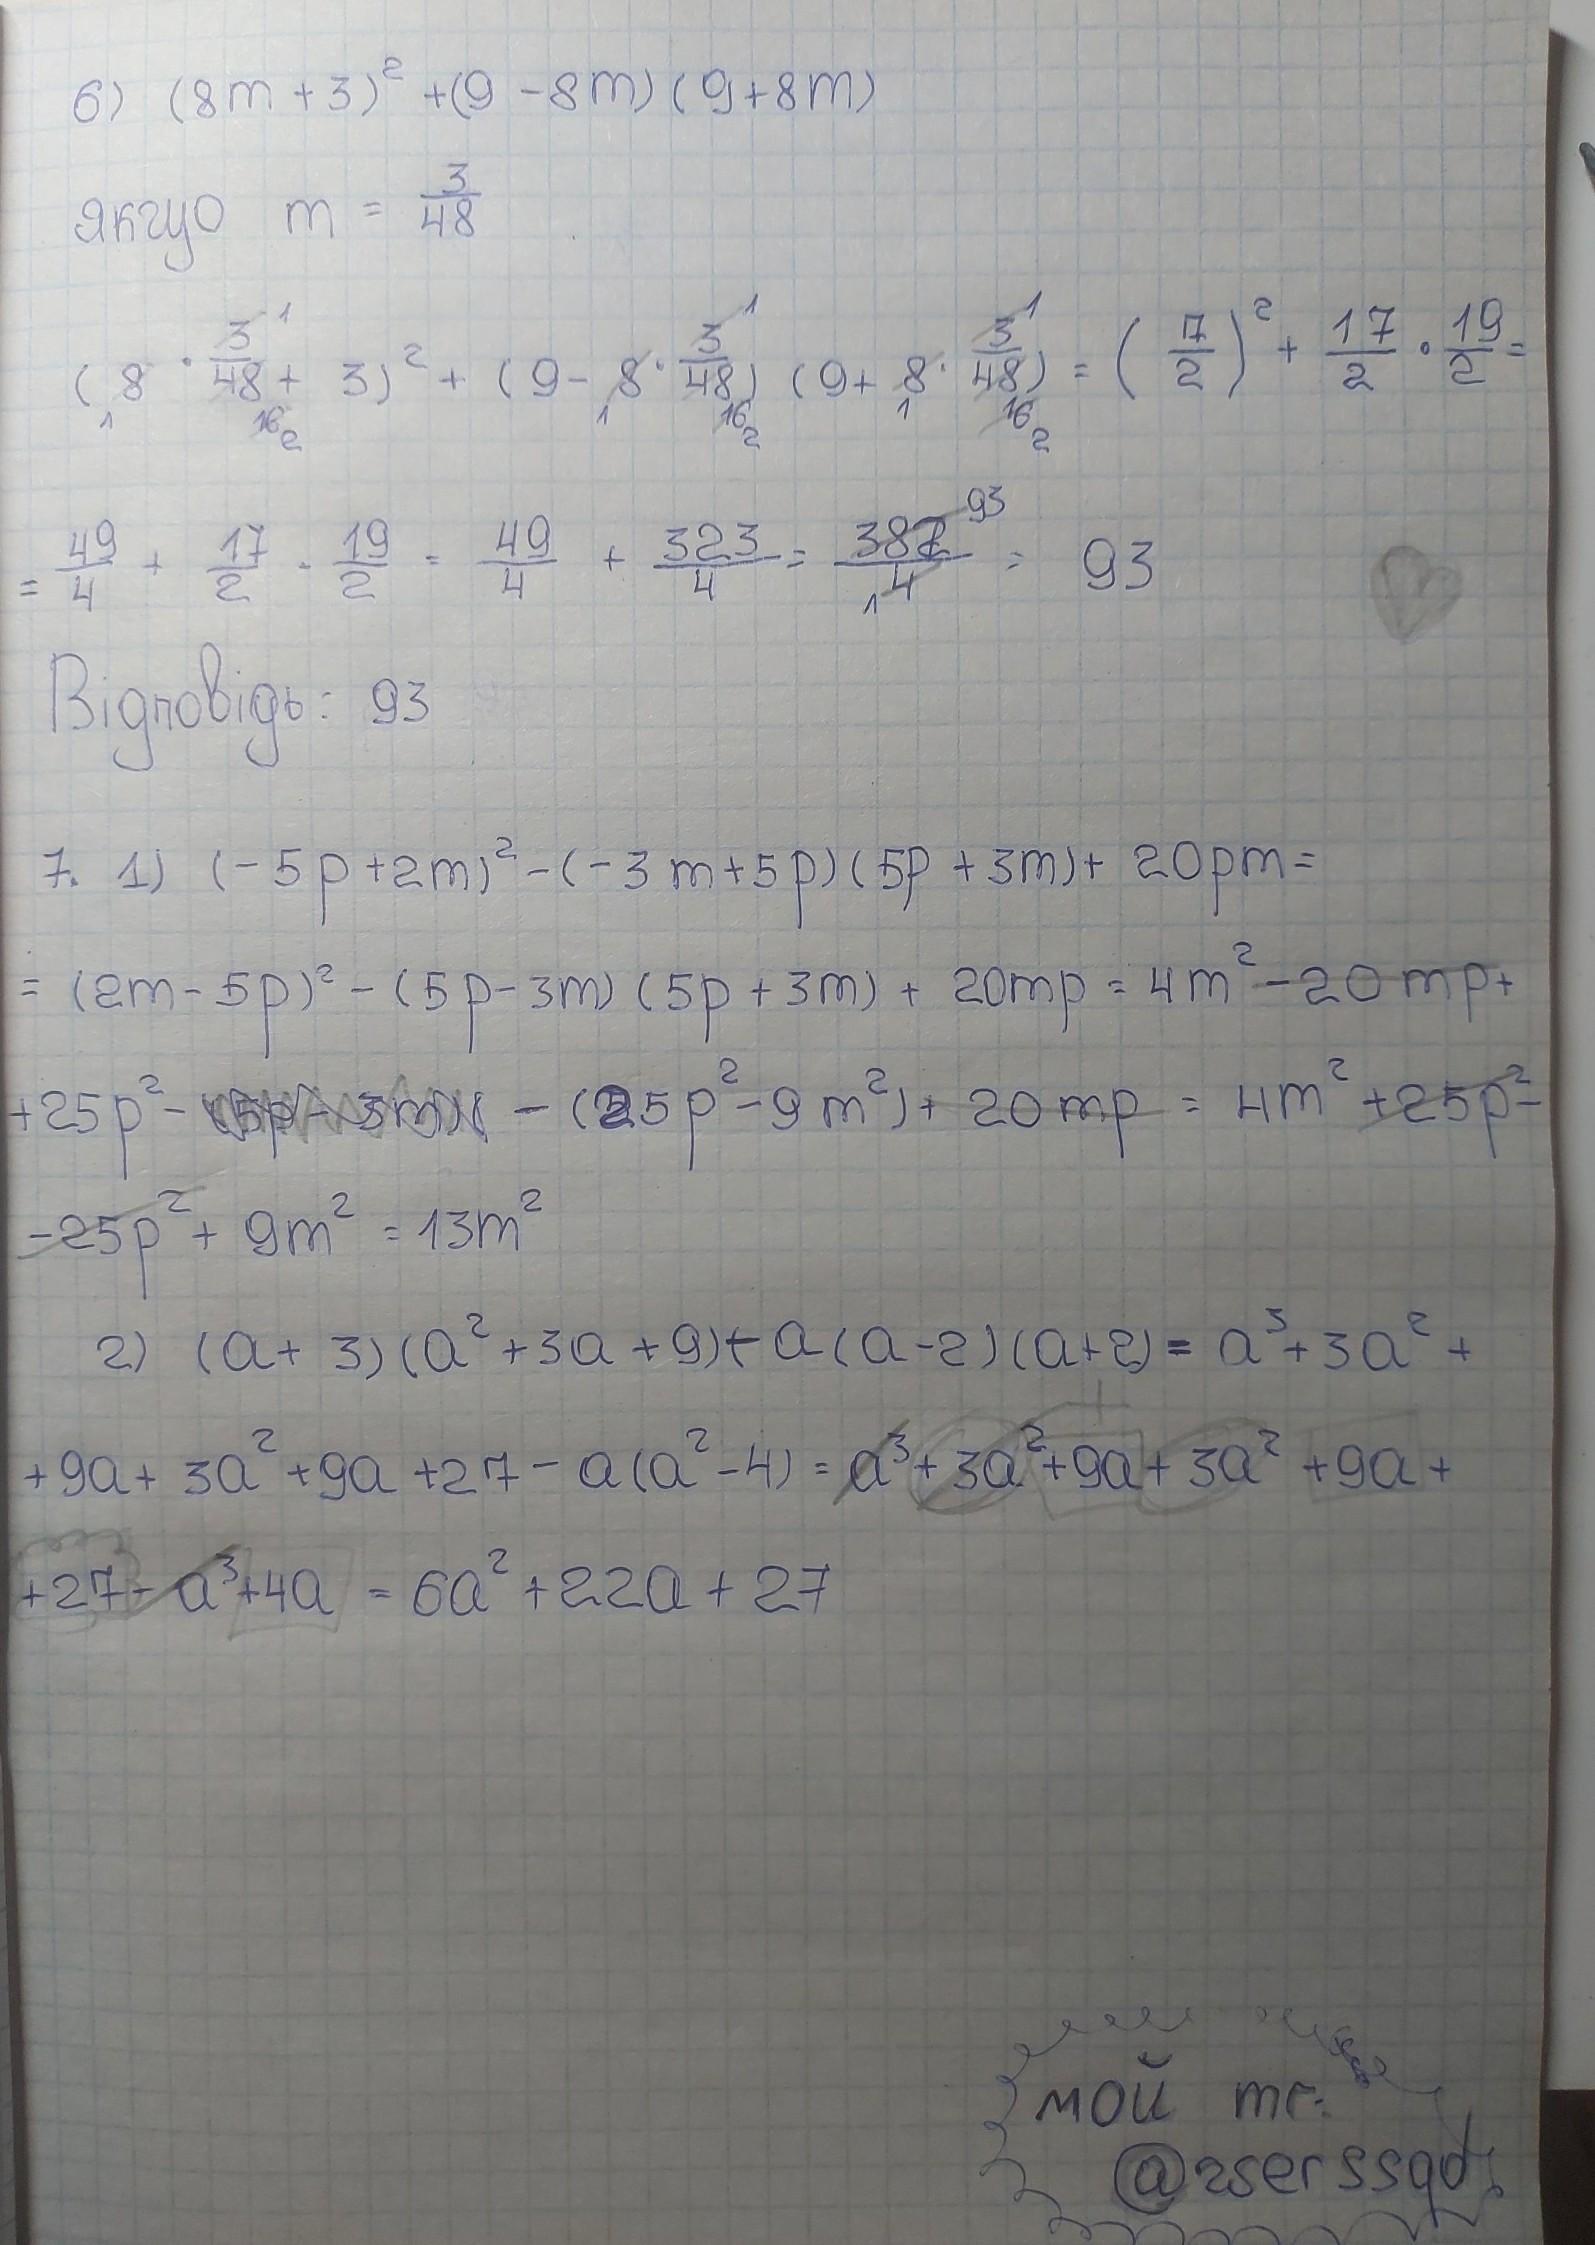 6) (8m + 3)² + (9 - 8m) (9 + 8m)
якщо m = 3/48
(8 · 3/48 + 3)² + (9 - 8 · 3/48) (9 + 8 · 3/48) = (7/2)² + 17/2 · 19/2 =
= 49/4 + 17/2 · 19/2 = 49/4 + 323/4 = 382/4 = 93
Відповідь: 93
7. 1) (-5p + 2m)² - (-3m + 5p) (5p + 3m) + 20pm =
= (2m - 5p)² - (5p - 3m) (5p + 3m) + 20mp = 4m² - 20mp +
+ 25p² - - (25p² - 9m²) + 20mp = 4m² + 25p² -
- 25p² + 9m² = 13m²
2) (a + 3) (a² + 3a + 9) - a (a - 2) (a + 2) = a³ + 3a² +
+ 9a + 3a² + 9a + 27 - a (a² - 4) = a³ + 3a² + 9a + 3a² + 9a +
+ 27 - a³ + 4a = 6a² + 22a + 27
мой тг: